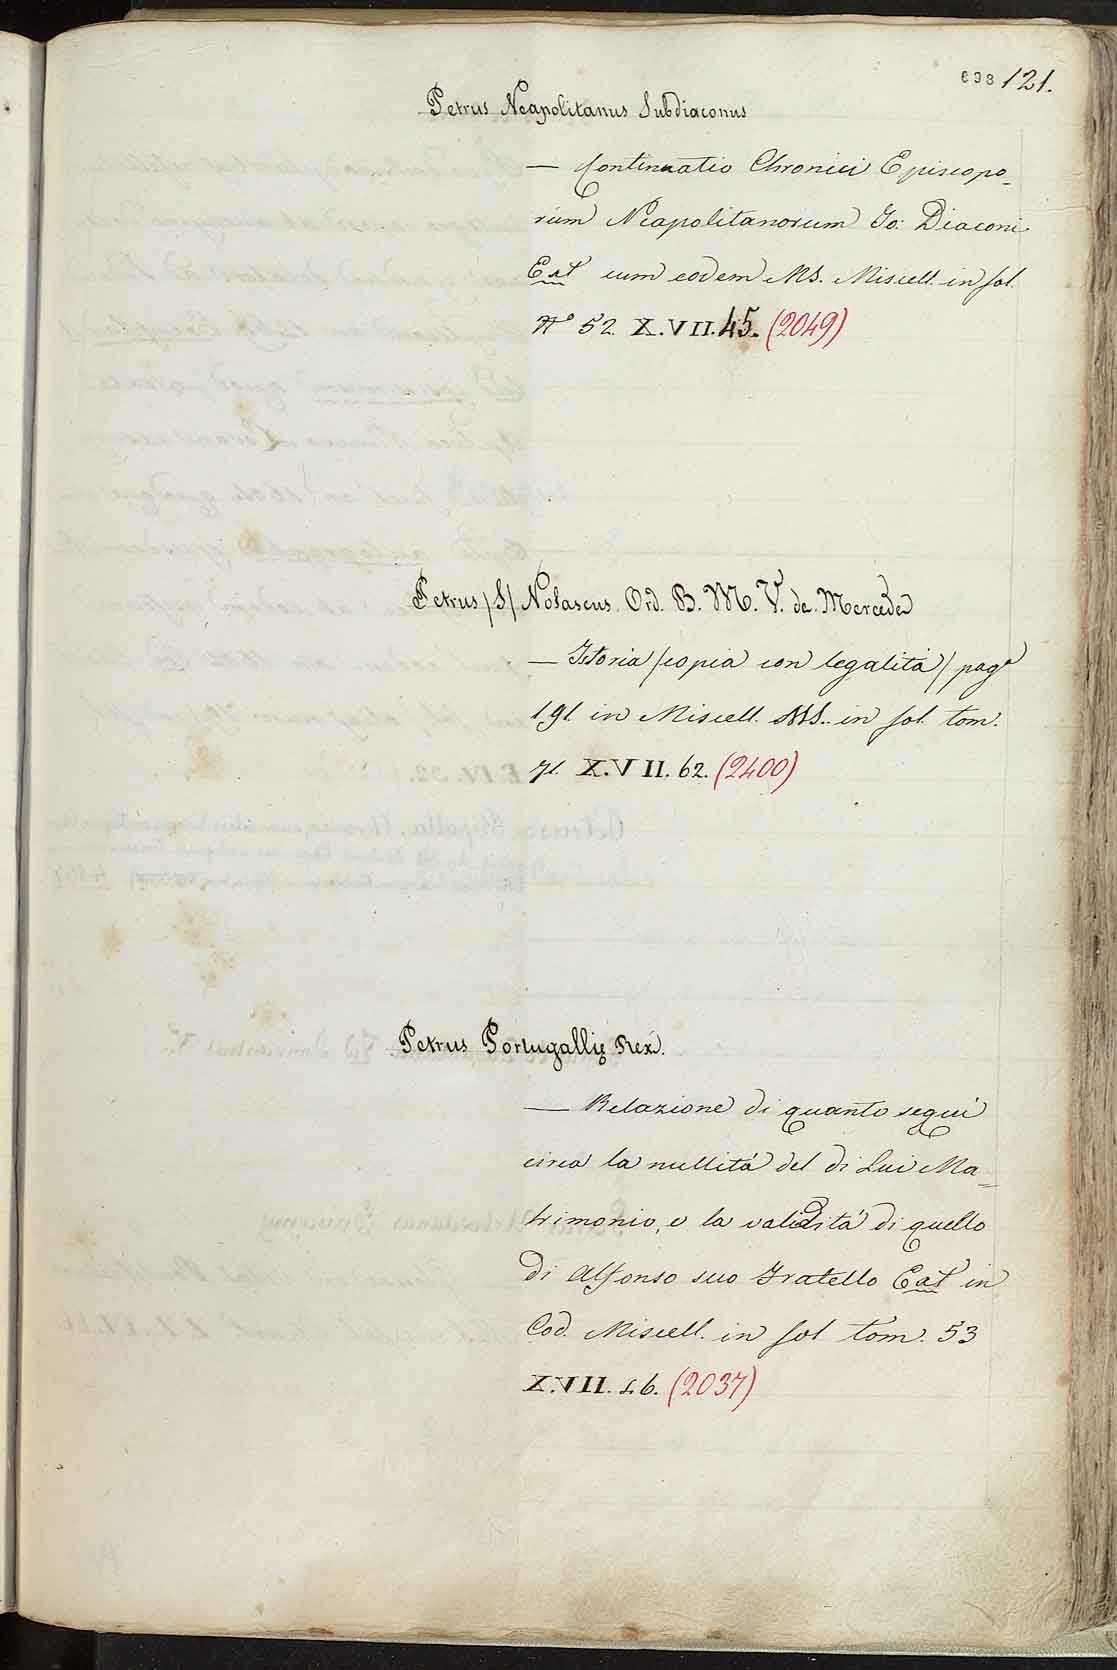 698 121.
Petrus Neapolitanus Subdiaconus
— Continuatio Chronici Episcopo-
rum Neapolitanorum Jo: Diaconi
Eat cum eodem MS. Miscell. in fol.
N.o 52. X.VII.45. (2049)
Petrus /S/ Nolascus Ord. B. M. V. de Mercede
— Istoria /copia con legalità/ pag.a
191. in Miscell. MS. in fol. tom.
71. X.VII.62. (2400)
Petrus Portugallię Rex.
— Relazione di quanto seguì
circa la nullità del di Lui Ma=
trimonio, e la validità di quello
di Alfonso suo Fratello Eat in
Cod. Miscell. in fol tom. 53
X.VII.46. (2037)